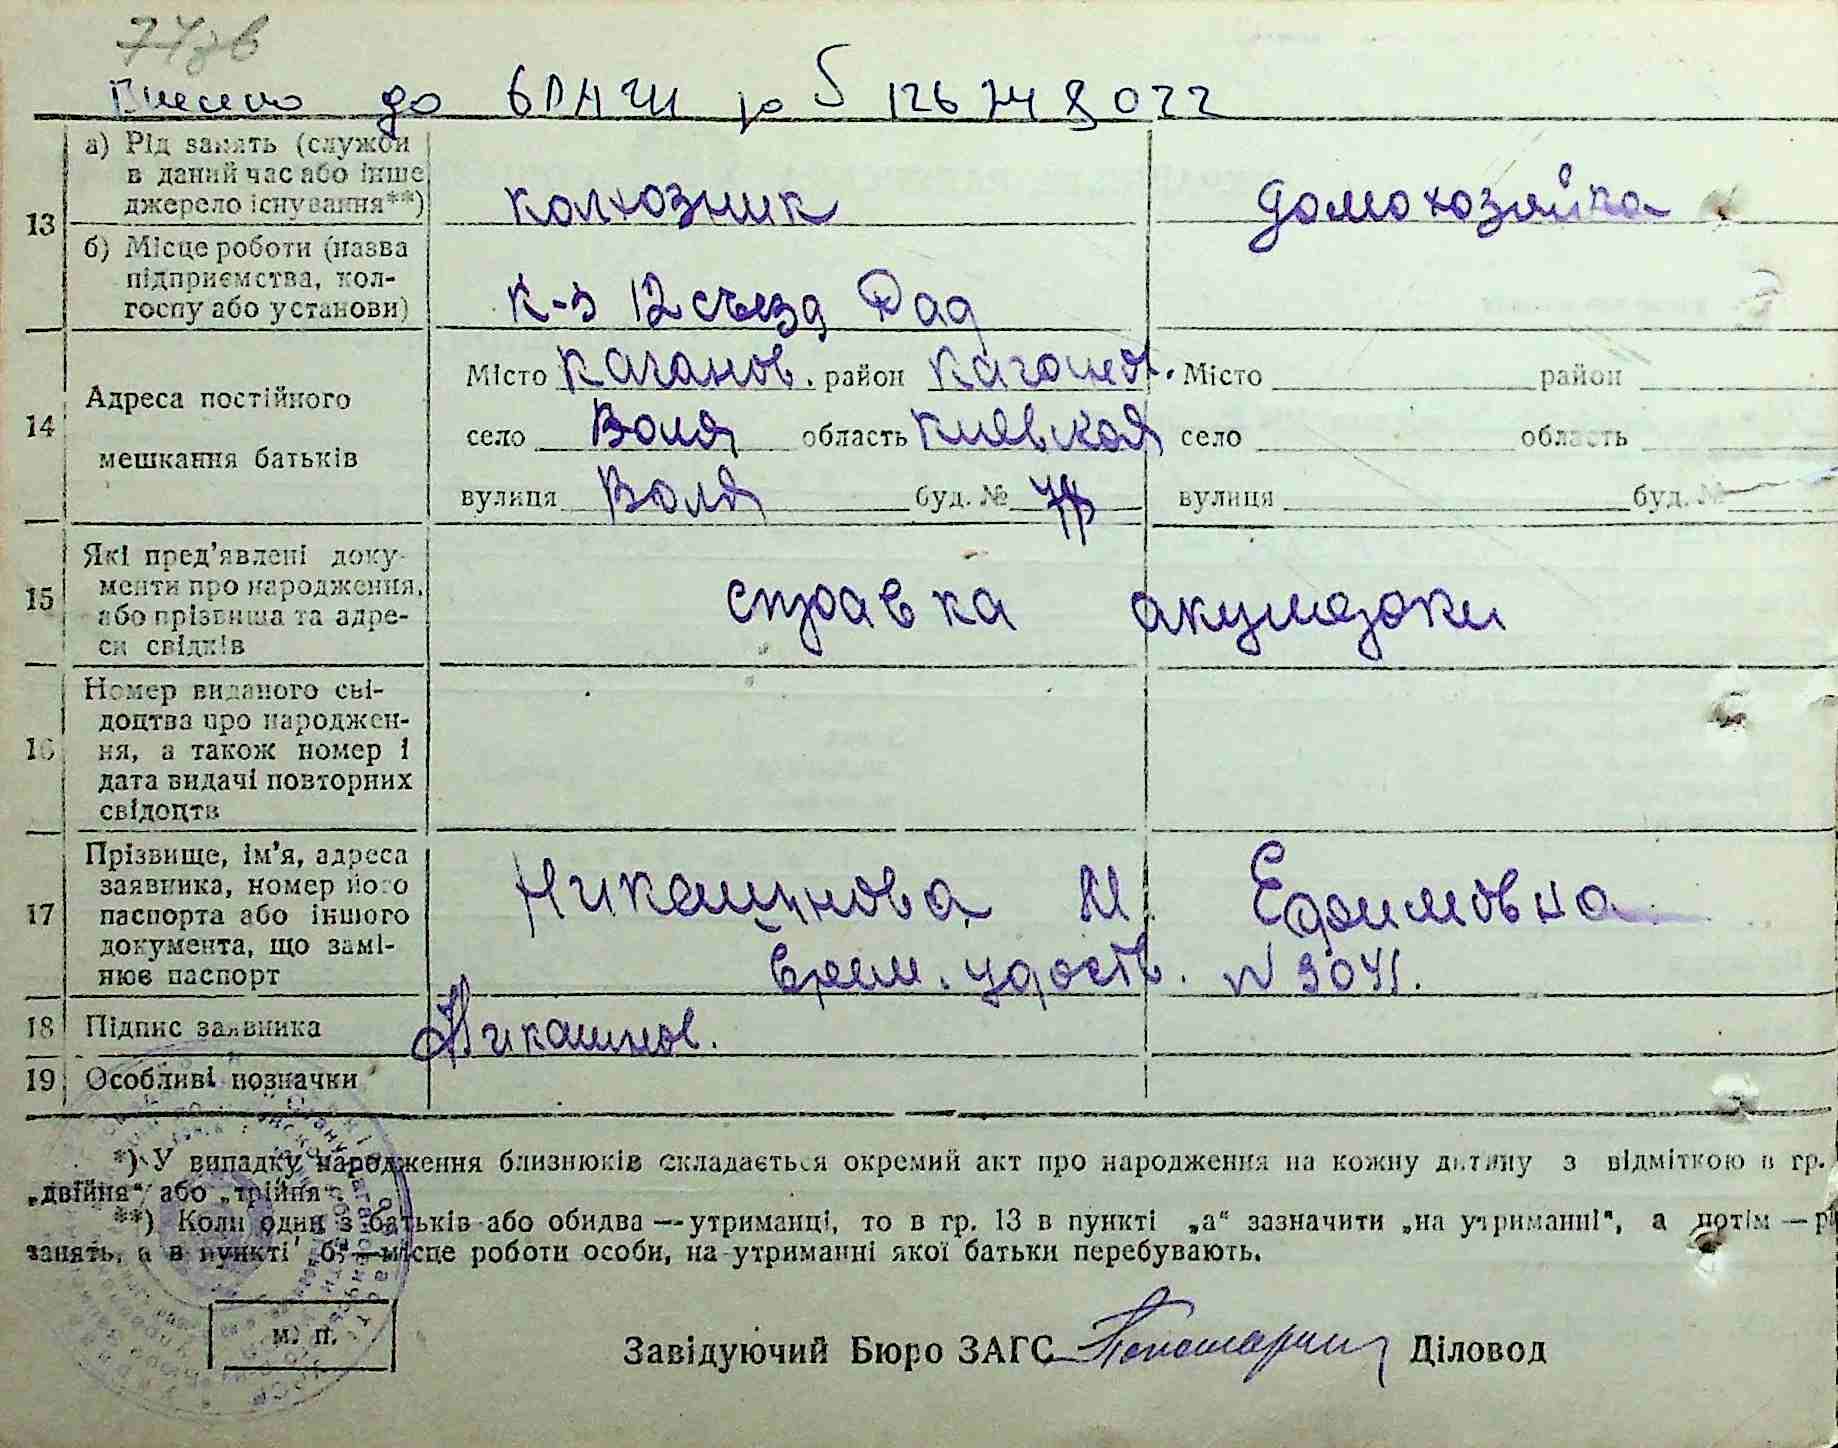 774зв
Внесено до
13
а) Рід занять (служби
в даний час або інше
джерело існування**)
колхозник
домохозяйка
б) Місце роботи (назва
підприємства, кол-
госпу або установи)
к-з 12 съезд Рад
14
Адреса постійного
мешкання батьків
Місто Каганов. район Каганов. Місто район
село Воля область Киевская село область
вулиця Воля буд. № вулиця буд. №
15
Які пред'явлені доку-
менти про народження,
або прізвища та адре-
си свідків
справка акушерки
16
Номер виданого сві-
доцтва про народжен-
ня, а також номер і
дата видачі повторних
свідоцтв
17
Прізвище, ім'я, адреса
заявника, номер його
паспорта або іншого
документа, що замі-
нює паспорт
Никашинова М. Ефимовна
врем. удост. N 3041.
18
Підпис заявника
Никашинов.
19
Особливі позначки
*) У випадку народження близнюків складається окремий акт про народження на кожну дитину з відміткою в гр.
„двійня“ або „трійня“.
**) Коли один з батьків або обидва — утриманці, то в гр. 13 в пункті „а“ зазначити „на утриманні“, а потім — р
занять, а в пункті „б“ — місце роботи особи, на утриманні якої батьки перебувають.
м. п.
Завідуючий Бюро ЗАГС Діловод